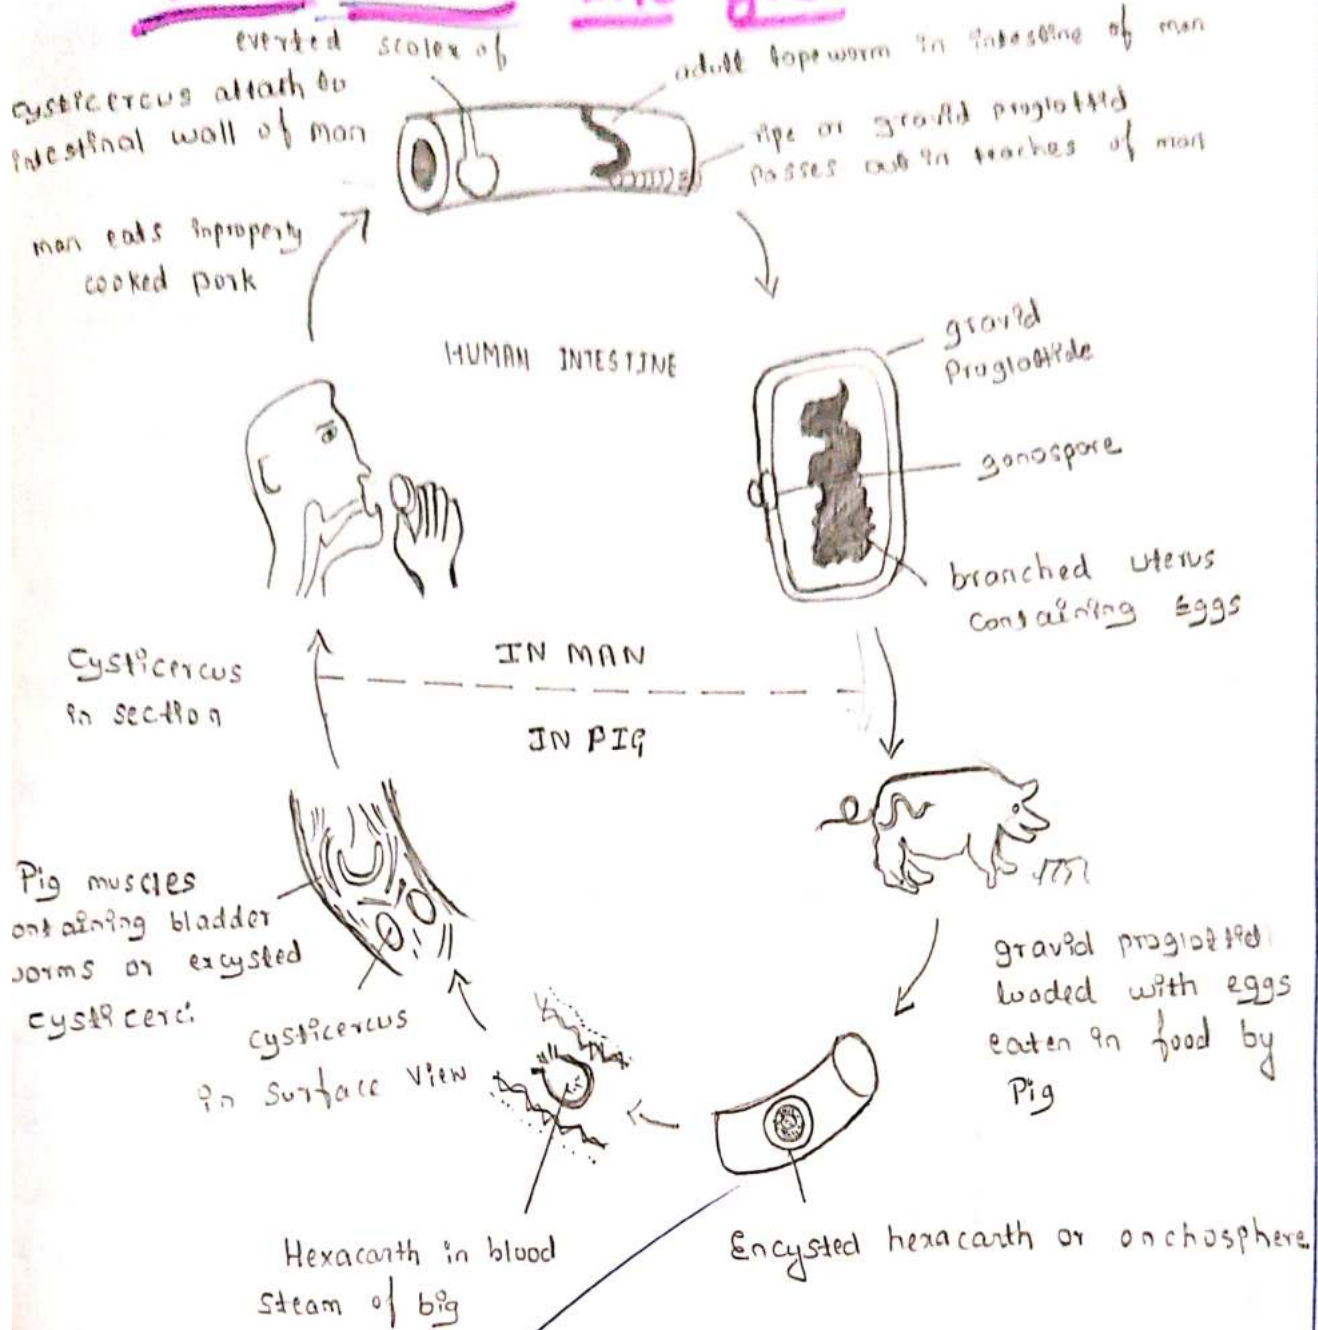 everted scolex of
cysticercus attach to
intestinal wall of man
adult tapeworm in intestine of man
ripe or gravid proglottid
passes out in of man
man eats inproperly
cooked pork
HUMAN INTESTINE
gravid
Proglottide
gonospore
branched uterus
containing Eggs
Cysticercus
in section
IN MAN
IN PIG
Pig muscles
ontaining bladder
worms or excysted
cysticerci
cysticercus
in Surface View
gravid proglottid
loaded with eggs
eaten in food by
Pig
Hexacanth in blood
steam of big
Encysted hexacanth or onchosphere